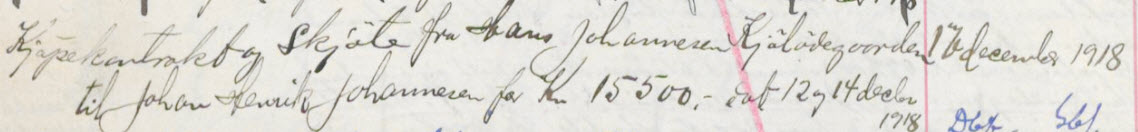 Kjøpekontrakt og Skjøte fra Hans Johannesen Kjølødegaarden 16 december 1918
til Johan Henrik Johannesen for Kr 15500,- dat 12 og 14 decbr
1918